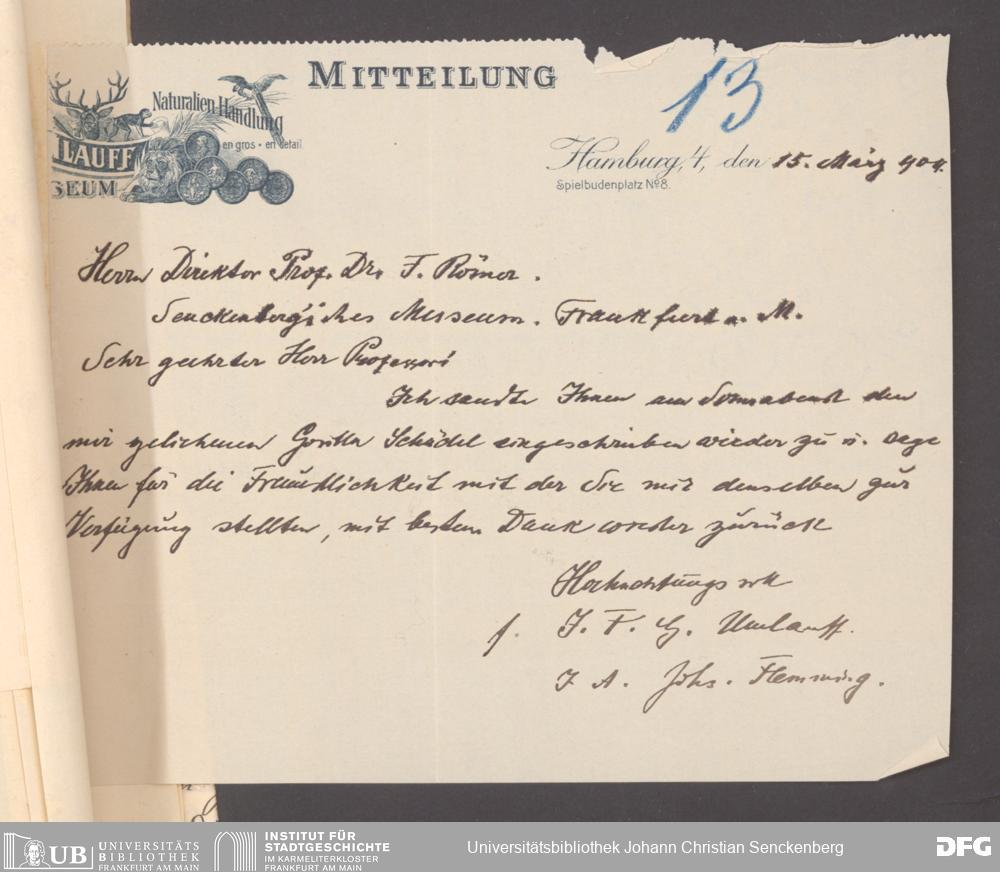 MITTEILUNG
13
Naturalien Handlung
en gros • en detail.
LAUFF
SEUM
Hamburg, 4, den 15. März 904.
Spielbudenplatz No 8.
Herrn Direktor Prof. Dr. F. Römer.
Senckenbergisches Museum. Frankfurt a. M.
Sehr geehrter Herr Professor!
Ich sandte Ihnen am Sonnabend den
mir geliehenen Gorilla Schädel eingeschrieben wieder zu u. sage
Ihnen für die Freundlichkeit mit der Sie mir denselben zur
Verfügung stellten, mit bestem Dank wieder zurück
Hochachtungsvoll
f. J. F. G. Umlauff.
I A. Johs. Flemming.
UB UNIVERSITÄTS
BIBLIOTHEK
FRANKFURT AM MAIN
INSTITUT FÜR
STADTGESCHICHTE
IM KARMELITERKLOSTER
FRANKFURT AM MAIN
Universitätsbibliothek Johann Christian Senckenberg
DFG